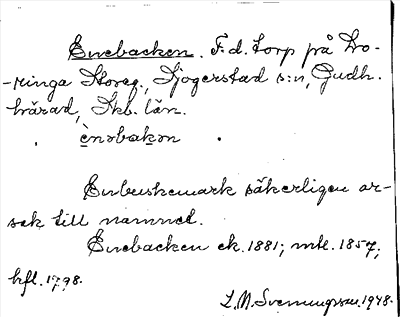 Enebacken. F.d. torp på Do-
-ringa Storeg., Gjogerstad s:n, Gudh.
härad, Skb. län.
ènəbakən
Enbuskemark säkerligen or-
sak till namnet.
Enebacken ek. 1881; mtl. 1857;
hfl. 1798.
L.M. Svenungsson. 1948.